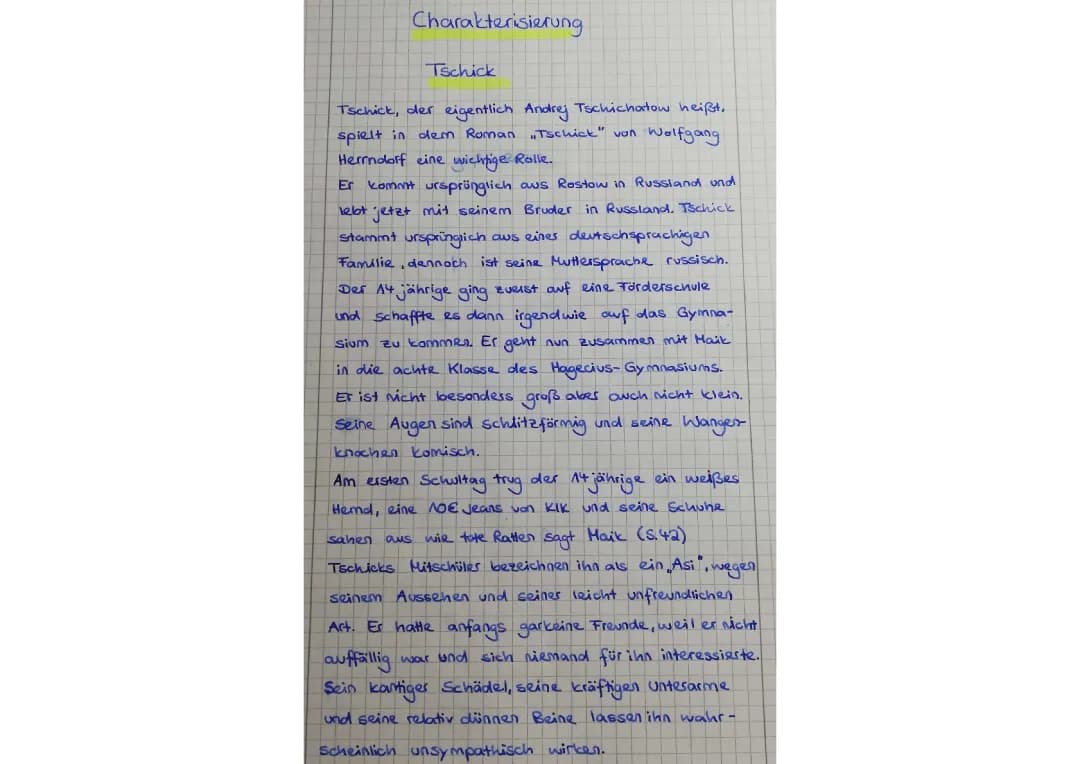 Charakterisierung
Tschick
Tschick, der eigentlich Andrej Tschichatow heißt,
spielt in dem Roman „Tschick" von Wolfgang
Herrndorf eine wichtige Rolle.
Er kommt ursprünglich aus Rostow in Russland und
lebt jetzt mit seinem Bruder in Russland. Tschick
stammt ursprüngich aus einer deutschsprachigen
Familie, dennoch ist seine Muttersprache russisch.
Der 14 jährige ging zuerst auf eine Förderschule
und schaffte es dann irgendwie auf das Gymna-
sium zu kommen. Er geht nun zusammen mit Maik
in die achte Klasse des Hagecius-Gymnasiums.
Er ist nicht besonders groß aber auch nicht klein.
Seine Augen sind schlitzförmig und seine Wangen-
knochen komisch.
Am ersten Schultag trug der 14 jährige ein weißes
Hemd, eine 10€ Jeans von KIK und seine Schuhe
sahen aus wie tote Ratten sagt Maik (S.42)
Tschicks Mitschüler bezeichnen ihn als ein „Asi", wegen
seinem Aussehen und seiner leicht unfreundlichen
Art. Er hatte anfangs garkeine Freunde, weil er nicht
auffällig war und sich niemand für ihn interessierte.
Sein kantiger Schädel, seine kräftigen Unterarme
und seine relativ dünnen Beine lassen ihn wahr-
scheinlich unsympathisch wirken.